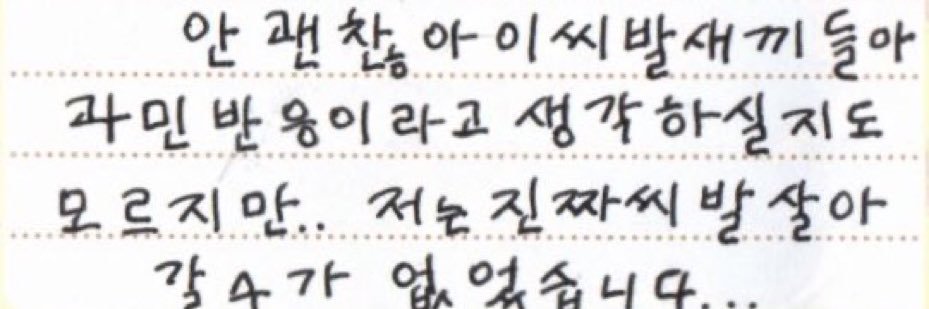 안괜찮아이씨발새끼들아
과민반응이라고 생각하실지도
모르지만.. 저는진짜씨발살아
갈수가 없었습니다...